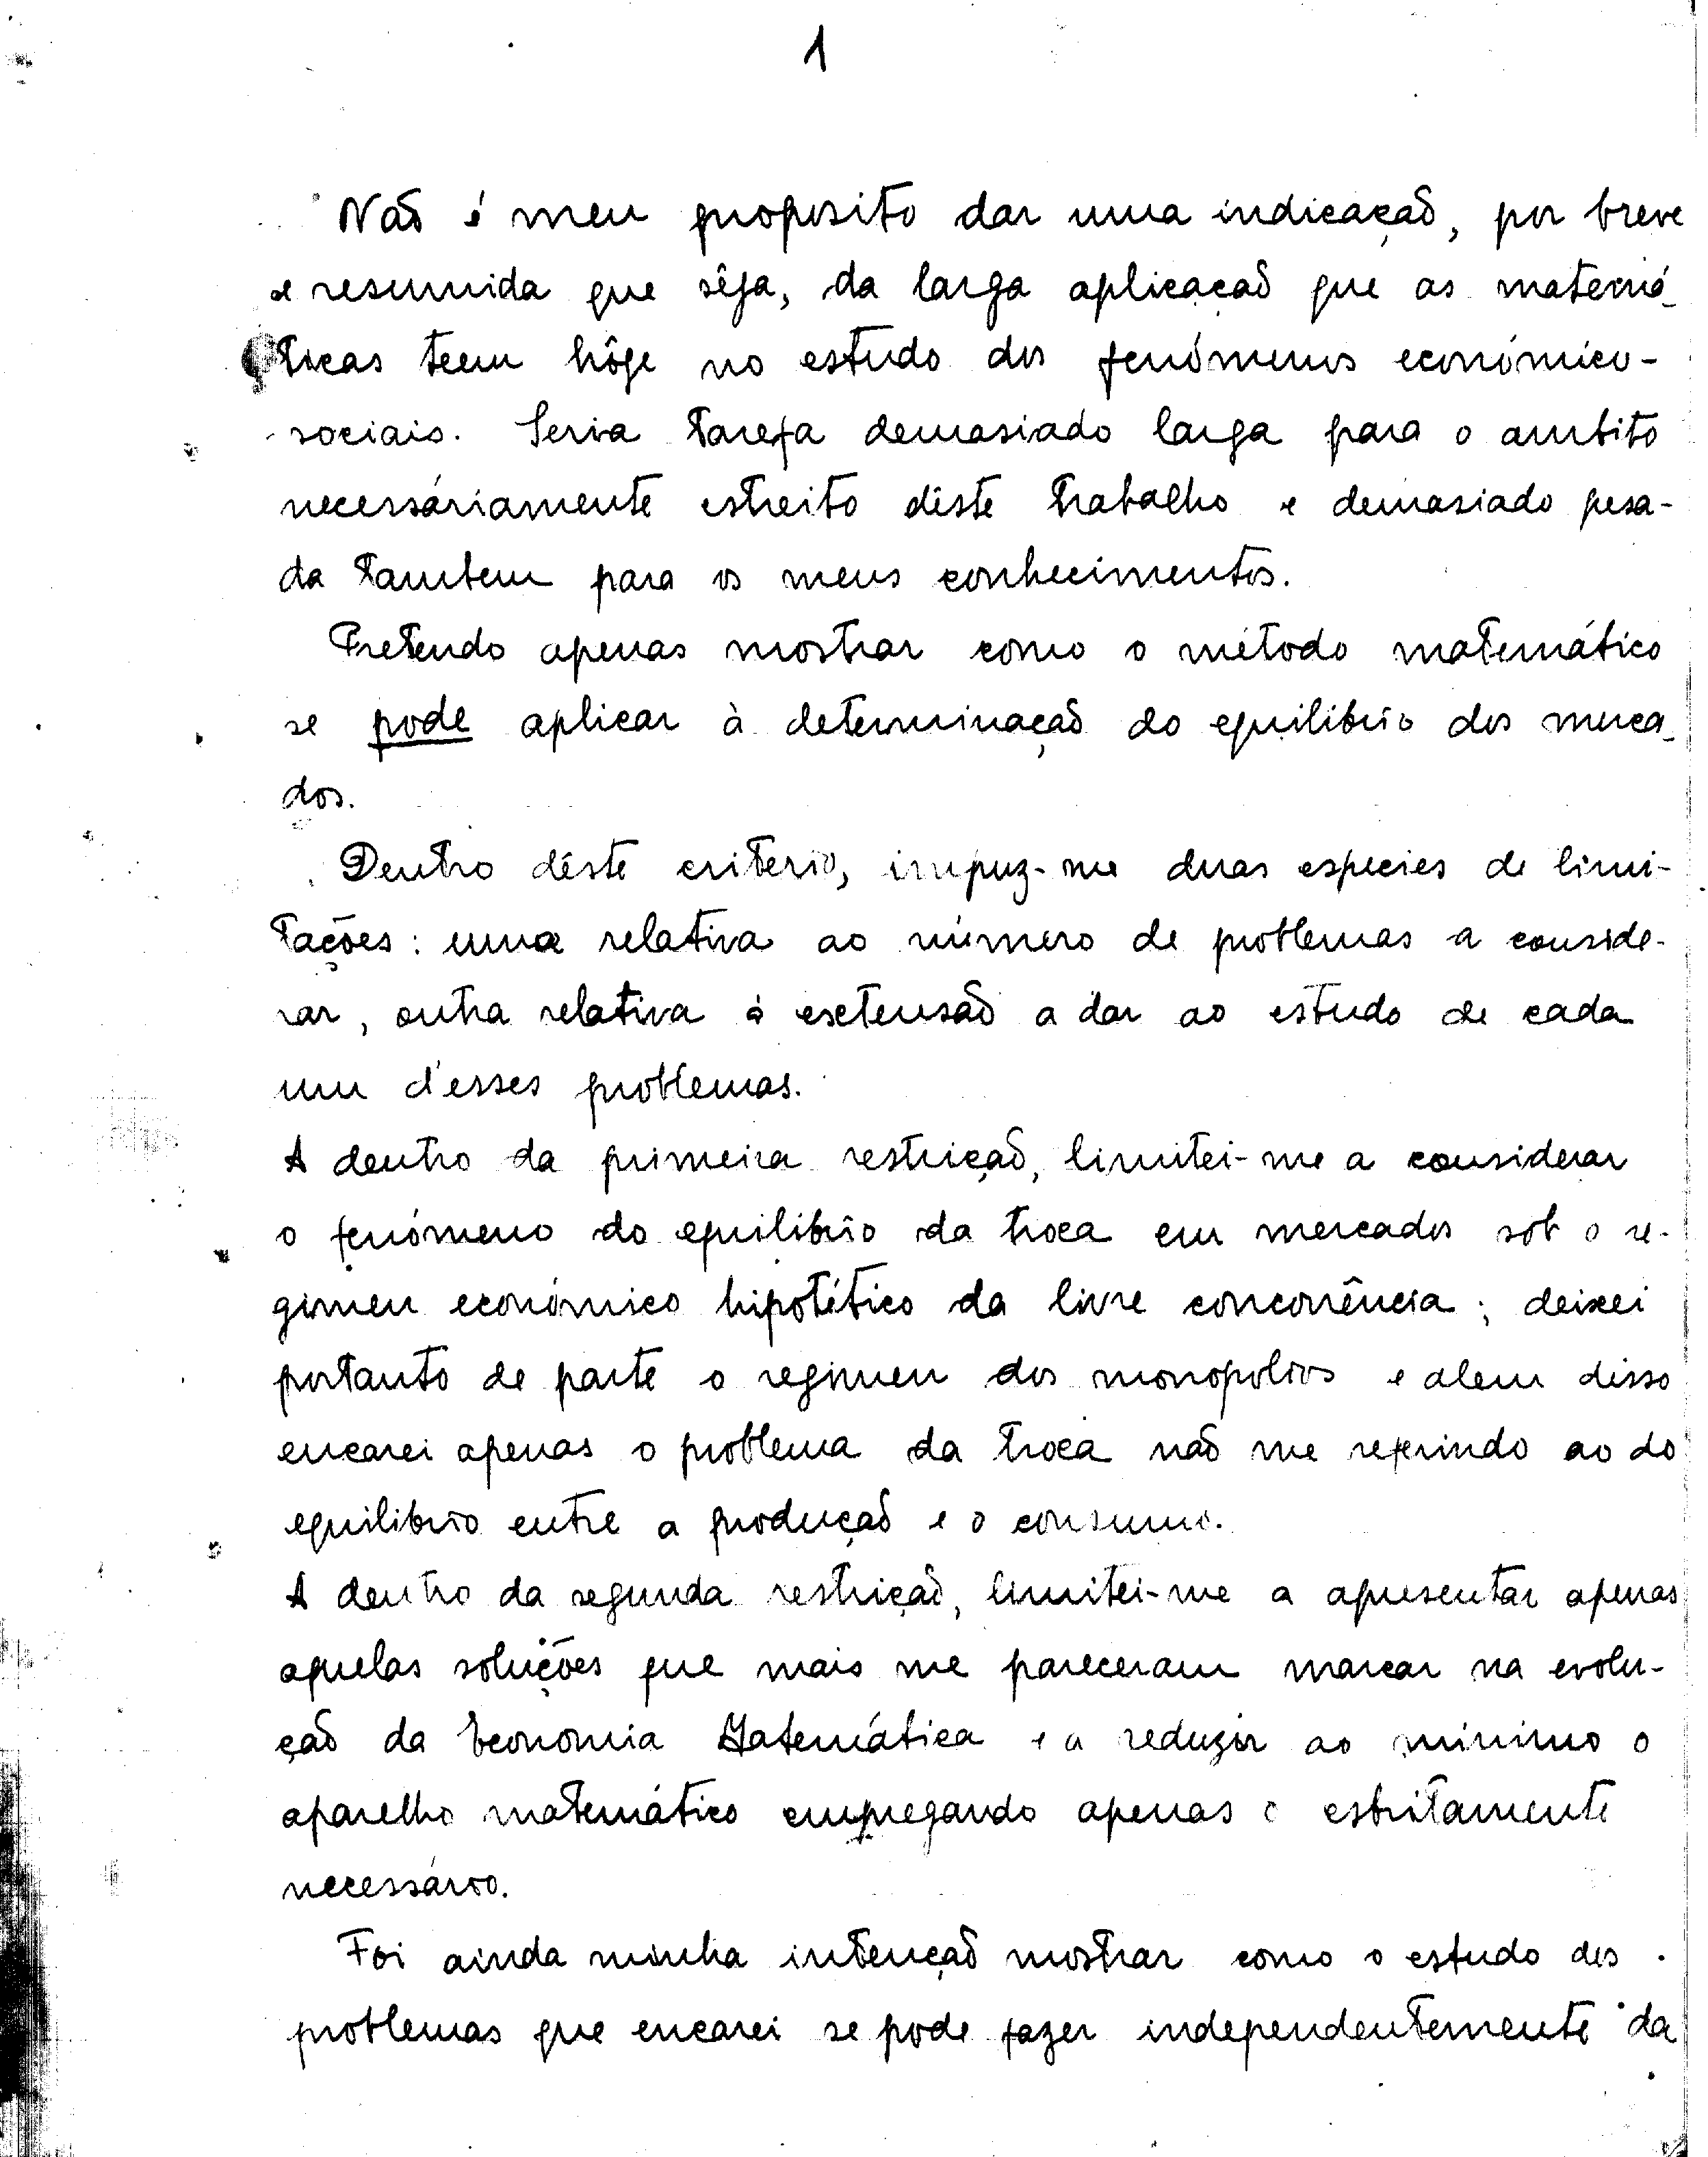 1
Não é meu proposito dar uma indicação, por breve
e resumida que sêja, da larga aplicação que as matemá-
ticas teem hôje no estudo dos fenómenos económico-
sociais. Seria tarefa demasiado larga para o ambito
necessáriamente estreito dêste trabalho e demasiado pesa-
da tambem para os meus conhecimentos.
Pretendo apenas mostrar como o método matemático
se pode aplicar à determinação do equilibrio dos merca-
dos.
Dentro dêste criterio, impuz-me duas especies de limi-
tações: uma relativa ao número de problemas a conside-
rar, outra relativa á extensão a dar ao estudo de cada
um d'esses problemas.
A dentro da primeira restrição, limitei-me a considerar
o fenómeno do equilibrio da troca em mercados sob o re-
gimen económico hipotético da livre concorrência; deixei
portanto de parte o regimen dos monopolios e alem disso
encarei apenas o problema da troca não me referindo ao do
equilibrio entre a produção e o consumo.
A dentro da segunda restrição, limitei-me a apresentar apenas
aquelas soluções que mais me pareceram marcar na evolu-
ção da Economia Matemática e a reduzir ao minimo o
aparelho matemático empregando apenas o estritamente
necessário.
Foi ainda minha intenção mostrar como o estudo dos
problemas que encarei se pode fazer independentemente da